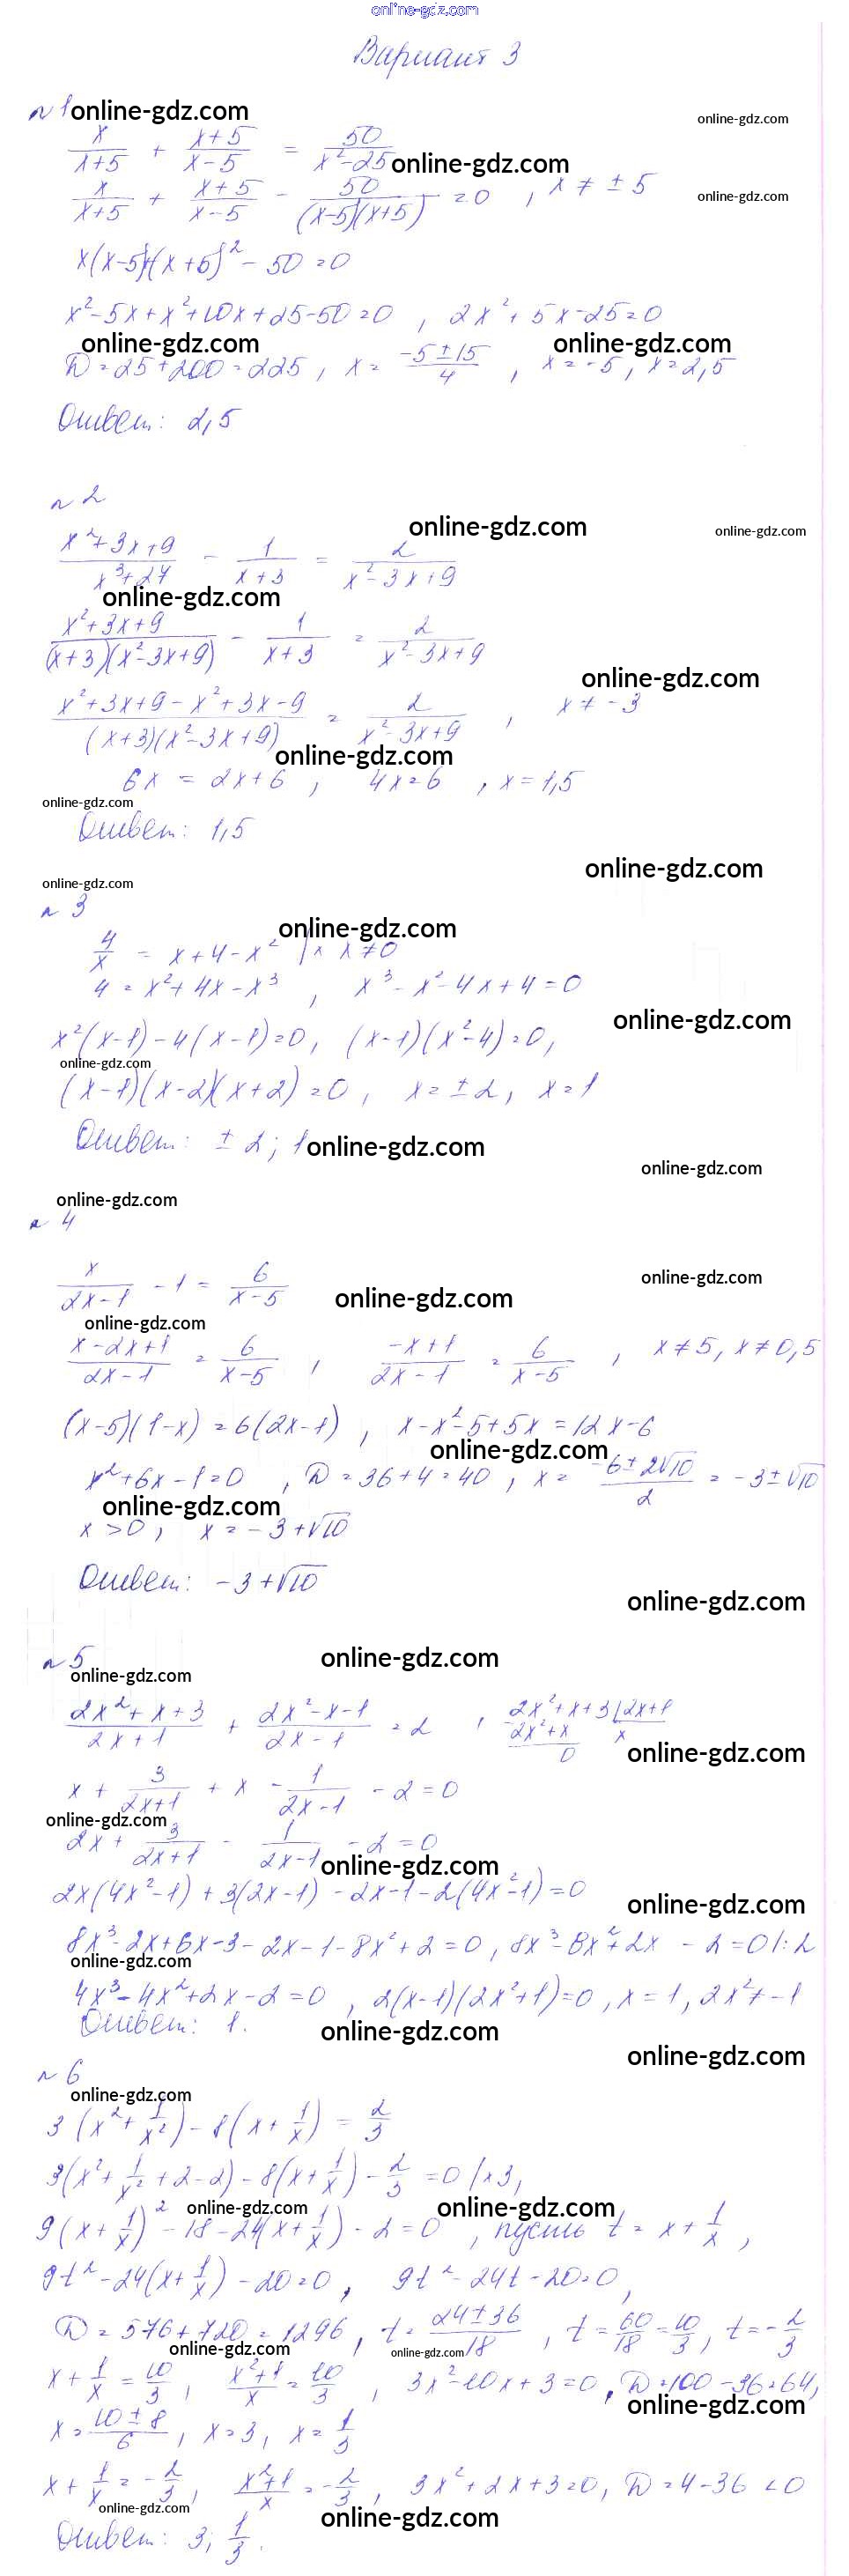 online-gdz.com
Вариант 3
№ 1 online-gdz.com
x/(x+5) + (x+5)/(x-5) = 50/(x²-25) online-gdz.com
online-gdz.com
x/(x+5) + (x+5)/(x-5) - 50/((x-5)(x+5)) = 0 , x ≠ ± 5
online-gdz.com
x(x-5)+(x+5)² - 50 = 0
x²-5x+x²+10x+25-50=0 , 2x²+5x-25=0
online-gdz.com online-gdz.com
D = 25+200=225, x = (-5±15)/4 , x = -5, x = 2,5
Ответ: 2,5
№ 2
online-gdz.com online-gdz.com
(x²+3x+9)/(x³+27) - 1/(x+3) = 2/(x²-3x+9)
online-gdz.com
(x²+3x+9)/((x+3)(x²-3x+9)) - 1/(x+3) = 2/(x²-3x+9)
online-gdz.com
(x²+3x+9-x²+3x-9)/((x+3)(x²-3x+9)) = 2/(x²-3x+9) , x ≠ -3
online-gdz.com
6x = 2x+6 , 4x=6 , x=1,5
online-gdz.com
Ответ: 1,5
online-gdz.com
online-gdz.com
№ 3
online-gdz.com
4/x = x+4-x² |×x x≠0
4 = x²+4x-x³ , x³-x²-4x+4=0
online-gdz.com
x²(x-1)-4(x-1)=0, (x-1)(x²-4)=0,
online-gdz.com
(x-1)(x-2)(x+2)=0 , x=±2, x=1
Ответ: ±2; 1 online-gdz.com
online-gdz.com
online-gdz.com
№ 4
x/(2x-1) - 1 = 6/(x-5) online-gdz.com
online-gdz.com
online-gdz.com
(x-2x+1)/(2x-1) = 6/(x-5) , (-x+1)/(2x-1) = 6/(x-5) , x≠5, x≠0,5
(x-5)(1-x)=6(2x-1) , x-x²-5+5x=12x-6
online-gdz.com
x²+6x-1=0 , D=36+4=40 , x = (-6±2√10)/2 = -3±√10
online-gdz.com
x>0, x = -3+√10
Ответ: -3+√10
online-gdz.com
№ 5 online-gdz.com
online-gdz.com
(2x²+x+3)/(2x+1) + (2x²-x-1)/(2x-1) = 2 , 2x²+x+3 |2x+1
2x²+x x
0 online-gdz.com
x + 3/(2x+1) + x - 1/(2x-1) - 2 = 0
online-gdz.com
2x + 3/(2x+1) - 1/(2x-1) - 2 = 0
online-gdz.com
2x(4x²-1)+3(2x-1)-2x-1-2(4x²-1)=0
online-gdz.com
8x³-2x+6x-3-2x-1-8x²+2=0, 8x³-8x²+2x-2=0 |:2
online-gdz.com
4x³-4x²+2x-2=0 , 2(x-1)(2x²+1)=0, x=1, 2x²≠-1
Ответ: 1. online-gdz.com
online-gdz.com
№ 6
online-gdz.com
3(x²+1/x²)-8(x+1/x) = 2/3
3(x²+1/x²+2-2)-8(x+1/x)-2/3=0 |×3,
online-gdz.com online-gdz.com
9(x+1/x)²-18-24(x+1/x)-2=0 , пусть t = x+1/x ,
9t²-24(x+1/x)-20=0, 9t²-24t-20=0,
D=576+720=1296, t=(24±36)/18 , t=60/18=10/3, t=-2/3
online-gdz.com online-gdz.com
x+1/x=10/3, (x²+1)/x=10/3 , 3x²-10x+3=0, D=100-36=64,
online-gdz.com
x=(10±8)/6 , x=3, x=1/3
x+1/x=-2/3, (x²+1)/x=-2/3 , 3x²+2x+3=0, D=4-36<0
online-gdz.com online-gdz.com
Ответ: 3; 1/3.